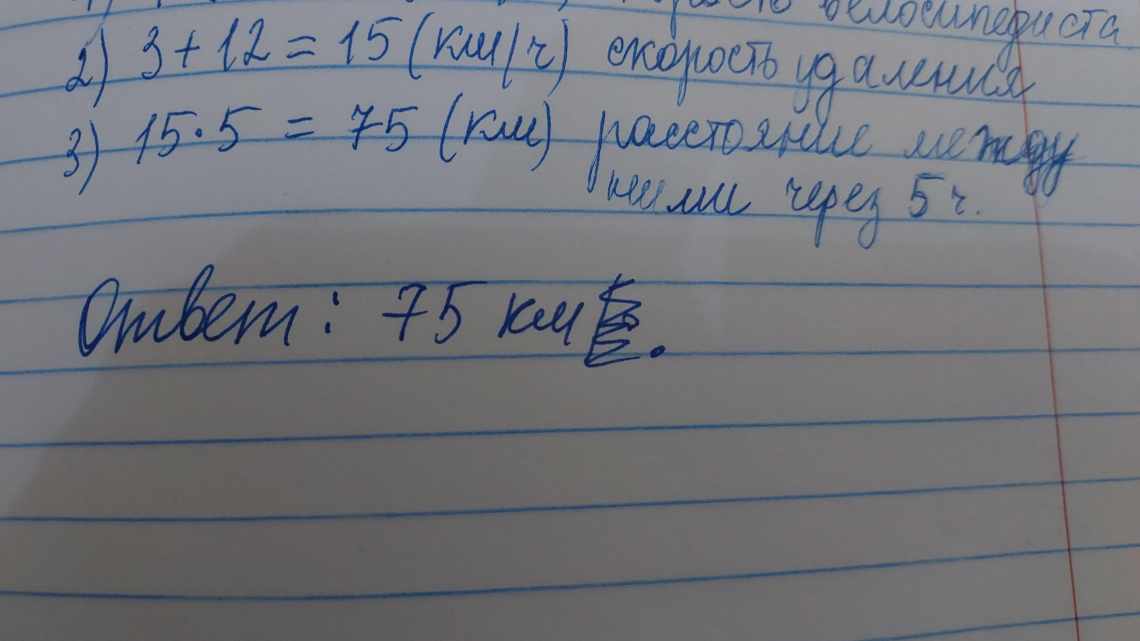 велосипедиста
2) 3 + 12 = 15 (км/ч) скорость удаления
3) 15 · 5 = 75 (км) расстояние между
ними через 5 ч.
Ответ: 75 км.